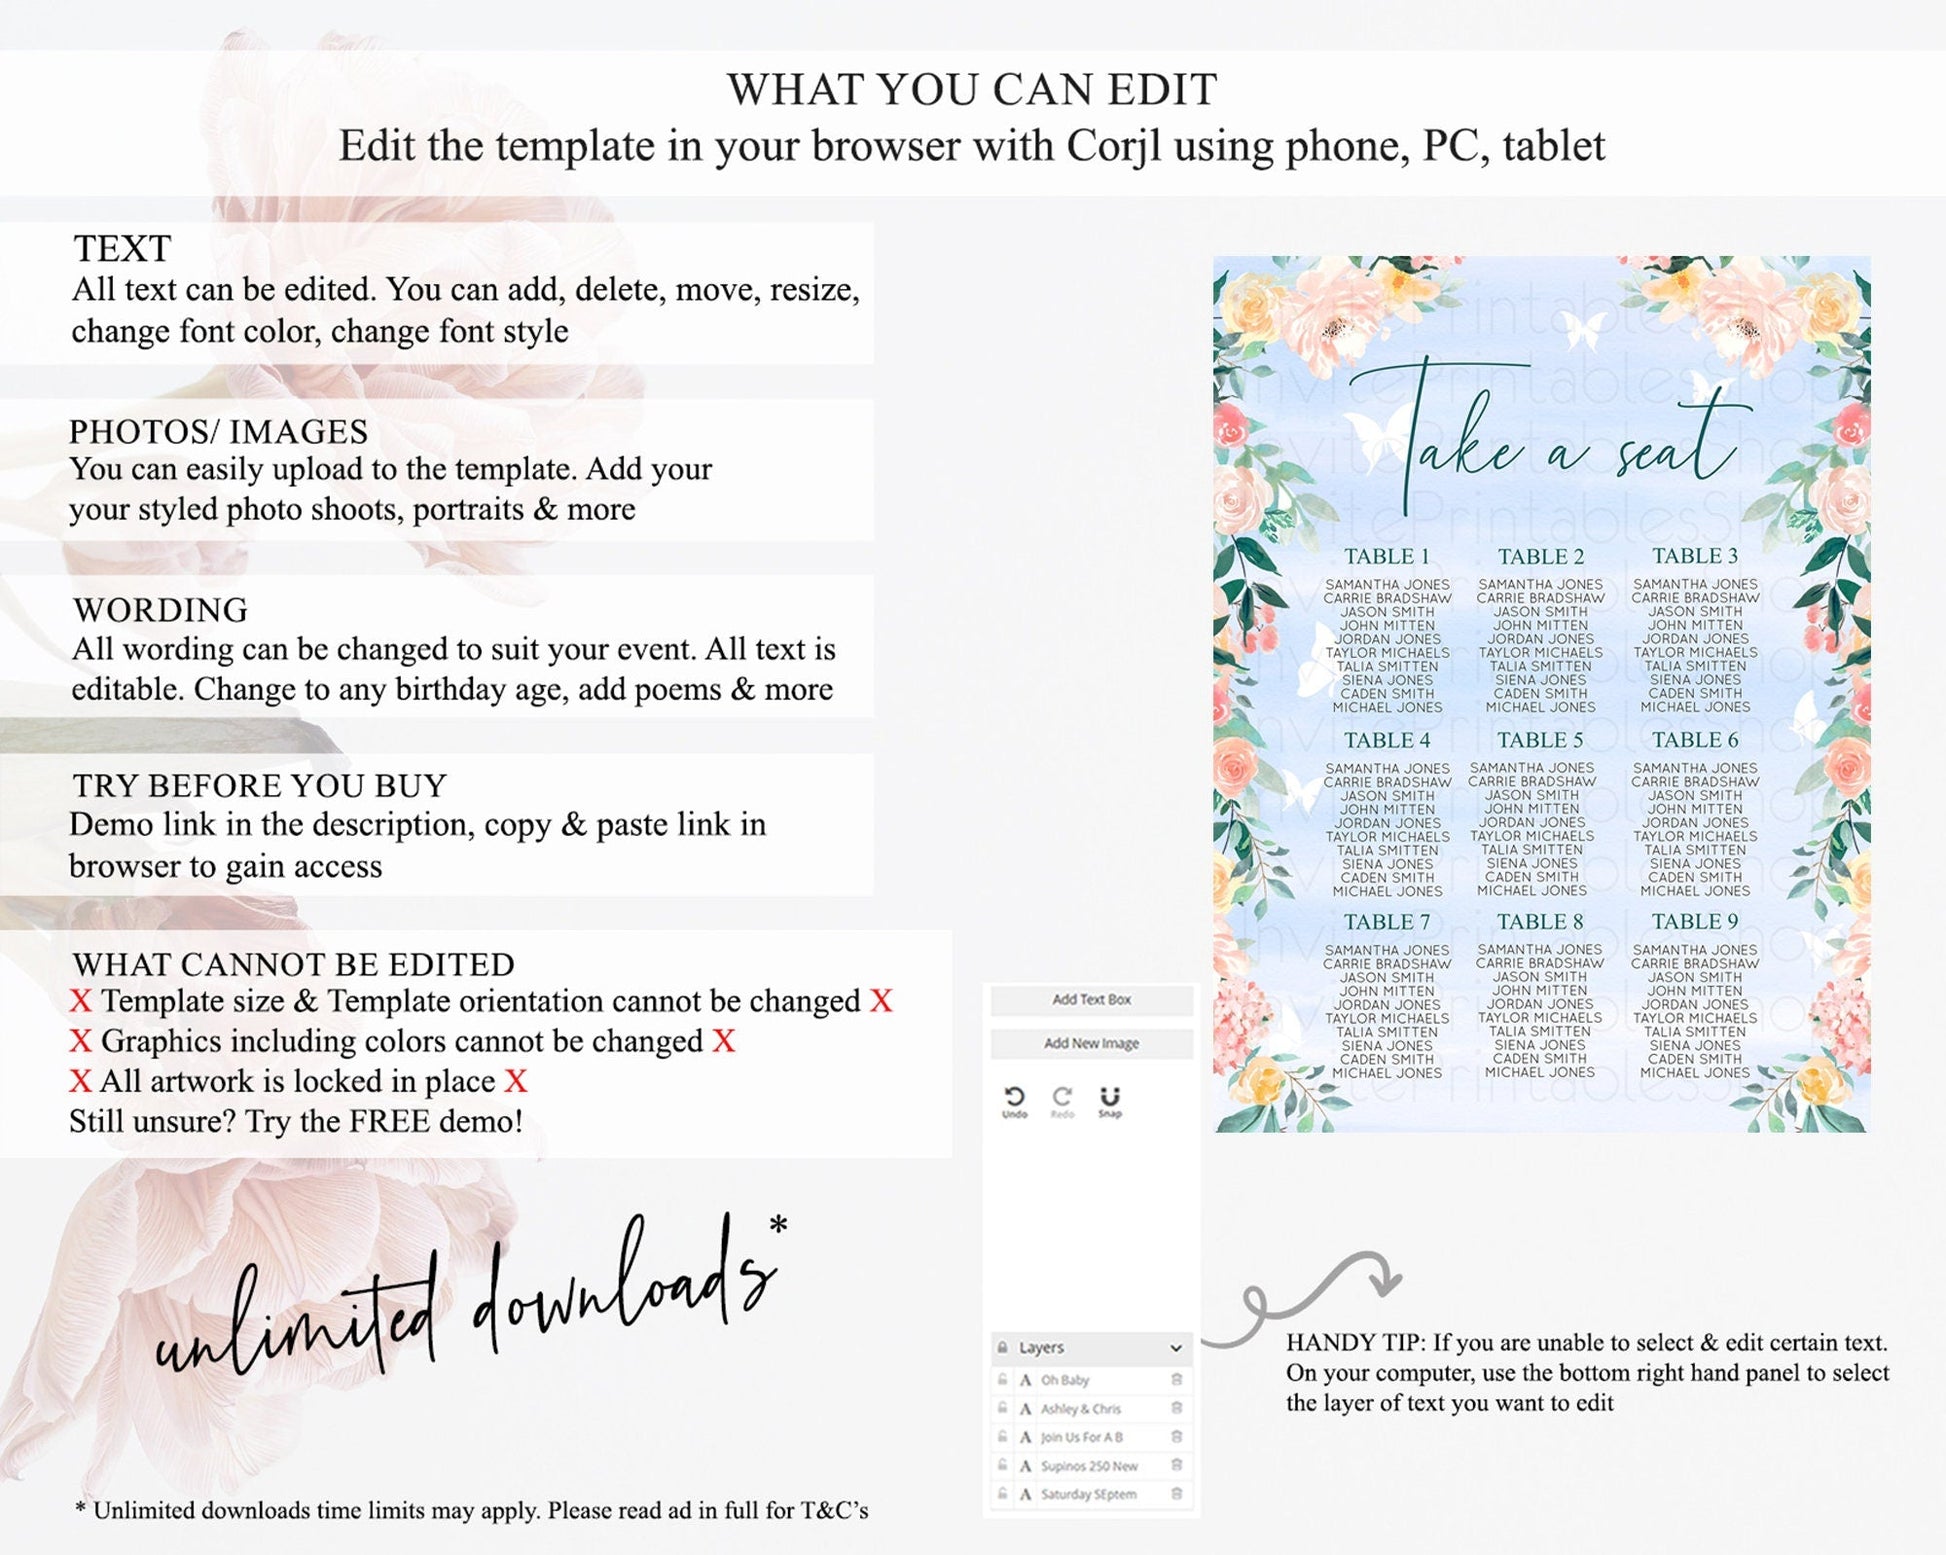 WHAT YOU CAN EDIT
Edit the template in your browser with Corjl using phone, PC, tablet
TEXT
All text can be edited. You can add, delete, move, resize,
change font color, change font style
PHOTOS/ IMAGES
You can easily upload to the template. Add your
your styled photo shoots, portraits & more
WORDING
All wording can be changed to suit your event. All text is
editable. Change to any birthday age, add poems & more
TRY BEFORE YOU BUY
Demo link in the description, copy & paste link in
browser to gain access
WHAT CANNOT BE EDITED
X Template size & Template orientation cannot be changed X
X Graphics including colors cannot be changed X
X All artwork is locked in place X
Still unsure? Try the FREE demo!
unlimited downloads*
* Unlimited downloads time limits may apply. Please read ad in full for T&C's
Add Text Box
Add New Image
Undo Redo Snap
Layers
A Oh Baby
A Ashley & Chris
A Join Us For A B
A Supinos 250 New
A Saturday SEptem
HANDY TIP: If you are unable to select & edit certain text.
On your computer, use the bottom right hand panel to select
the layer of text you want to edit
Take a seat
TABLE 1
SAMANTHA JONES
CARRIE BRADSHAW
JASON SMITH
JOHN MITTEN
JORDAN JONES
TAYLOR MICHAELS
TALIA SMITTEN
SIENA JONES
CADEN SMITH
MICHAEL JONES
TABLE 2
SAMANTHA JONES
CARRIE BRADSHAW
JASON SMITH
JOHN MITTEN
JORDAN JONES
TAYLOR MICHAELS
TALIA SMITTEN
SIENA JONES
CADEN SMITH
MICHAEL JONES
TABLE 3
SAMANTHA JONES
CARRIE BRADSHAW
JASON SMITH
JOHN MITTEN
JORDAN JONES
TAYLOR MICHAELS
TALIA SMITTEN
SIENA JONES
CADEN SMITH
MICHAEL JONES
TABLE 4
SAMANTHA JONES
CARRIE BRADSHAW
JASON SMITH
JOHN MITTEN
JORDAN JONES
TAYLOR MICHAELS
TALIA SMITTEN
SIENA JONES
CADEN SMITH
MICHAEL JONES
TABLE 5
SAMANTHA JONES
CARRIE BRADSHAW
JASON SMITH
JOHN MITTEN
JORDAN JONES
TAYLOR MICHAELS
TALIA SMITTEN
SIENA JONES
CADEN SMITH
MICHAEL JONES
TABLE 6
SAMANTHA JONES
CARRIE BRADSHAW
JASON SMITH
JOHN MITTEN
JORDAN JONES
TAYLOR MICHAELS
TALIA SMITTEN
SIENA JONES
CADEN SMITH
MICHAEL JONES
TABLE 7
SAMANTHA JONES
CARRIE BRADSHAW
JASON SMITH
JOHN MITTEN
JORDAN JONES
TAYLOR MICHAELS
TALIA SMITTEN
SIENA JONES
CADEN SMITH
MICHAEL JONES
TABLE 8
SAMANTHA JONES
CARRIE BRADSHAW
JASON SMITH
JOHN MITTEN
JORDAN JONES
TAYLOR MICHAELS
TALIA SMITTEN
SIENA JONES
CADEN SMITH
MICHAEL JONES
TABLE 9
SAMANTHA JONES
CARRIE BRADSHAW
JASON SMITH
JOHN MITTEN
JORDAN JONES
TAYLOR MICHAELS
TALIA SMITTEN
SIENA JONES
CADEN SMITH
MICHAEL JONES